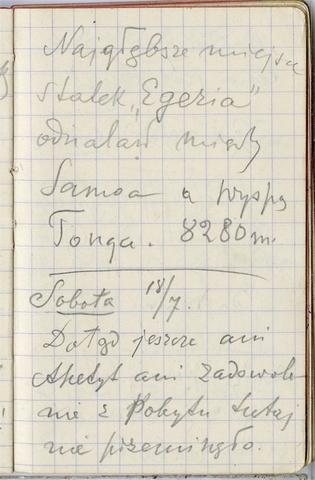 Najgłębsze miejsce
statek „Egeria”
odnalazł między
Samoa a wyspą
Tonga. 8280 m.
Sobota 18/7.
Dotąd jeszcze ani
Apetyt ani zadowole
nie z Pobytu tutaj
nie przeminęło.